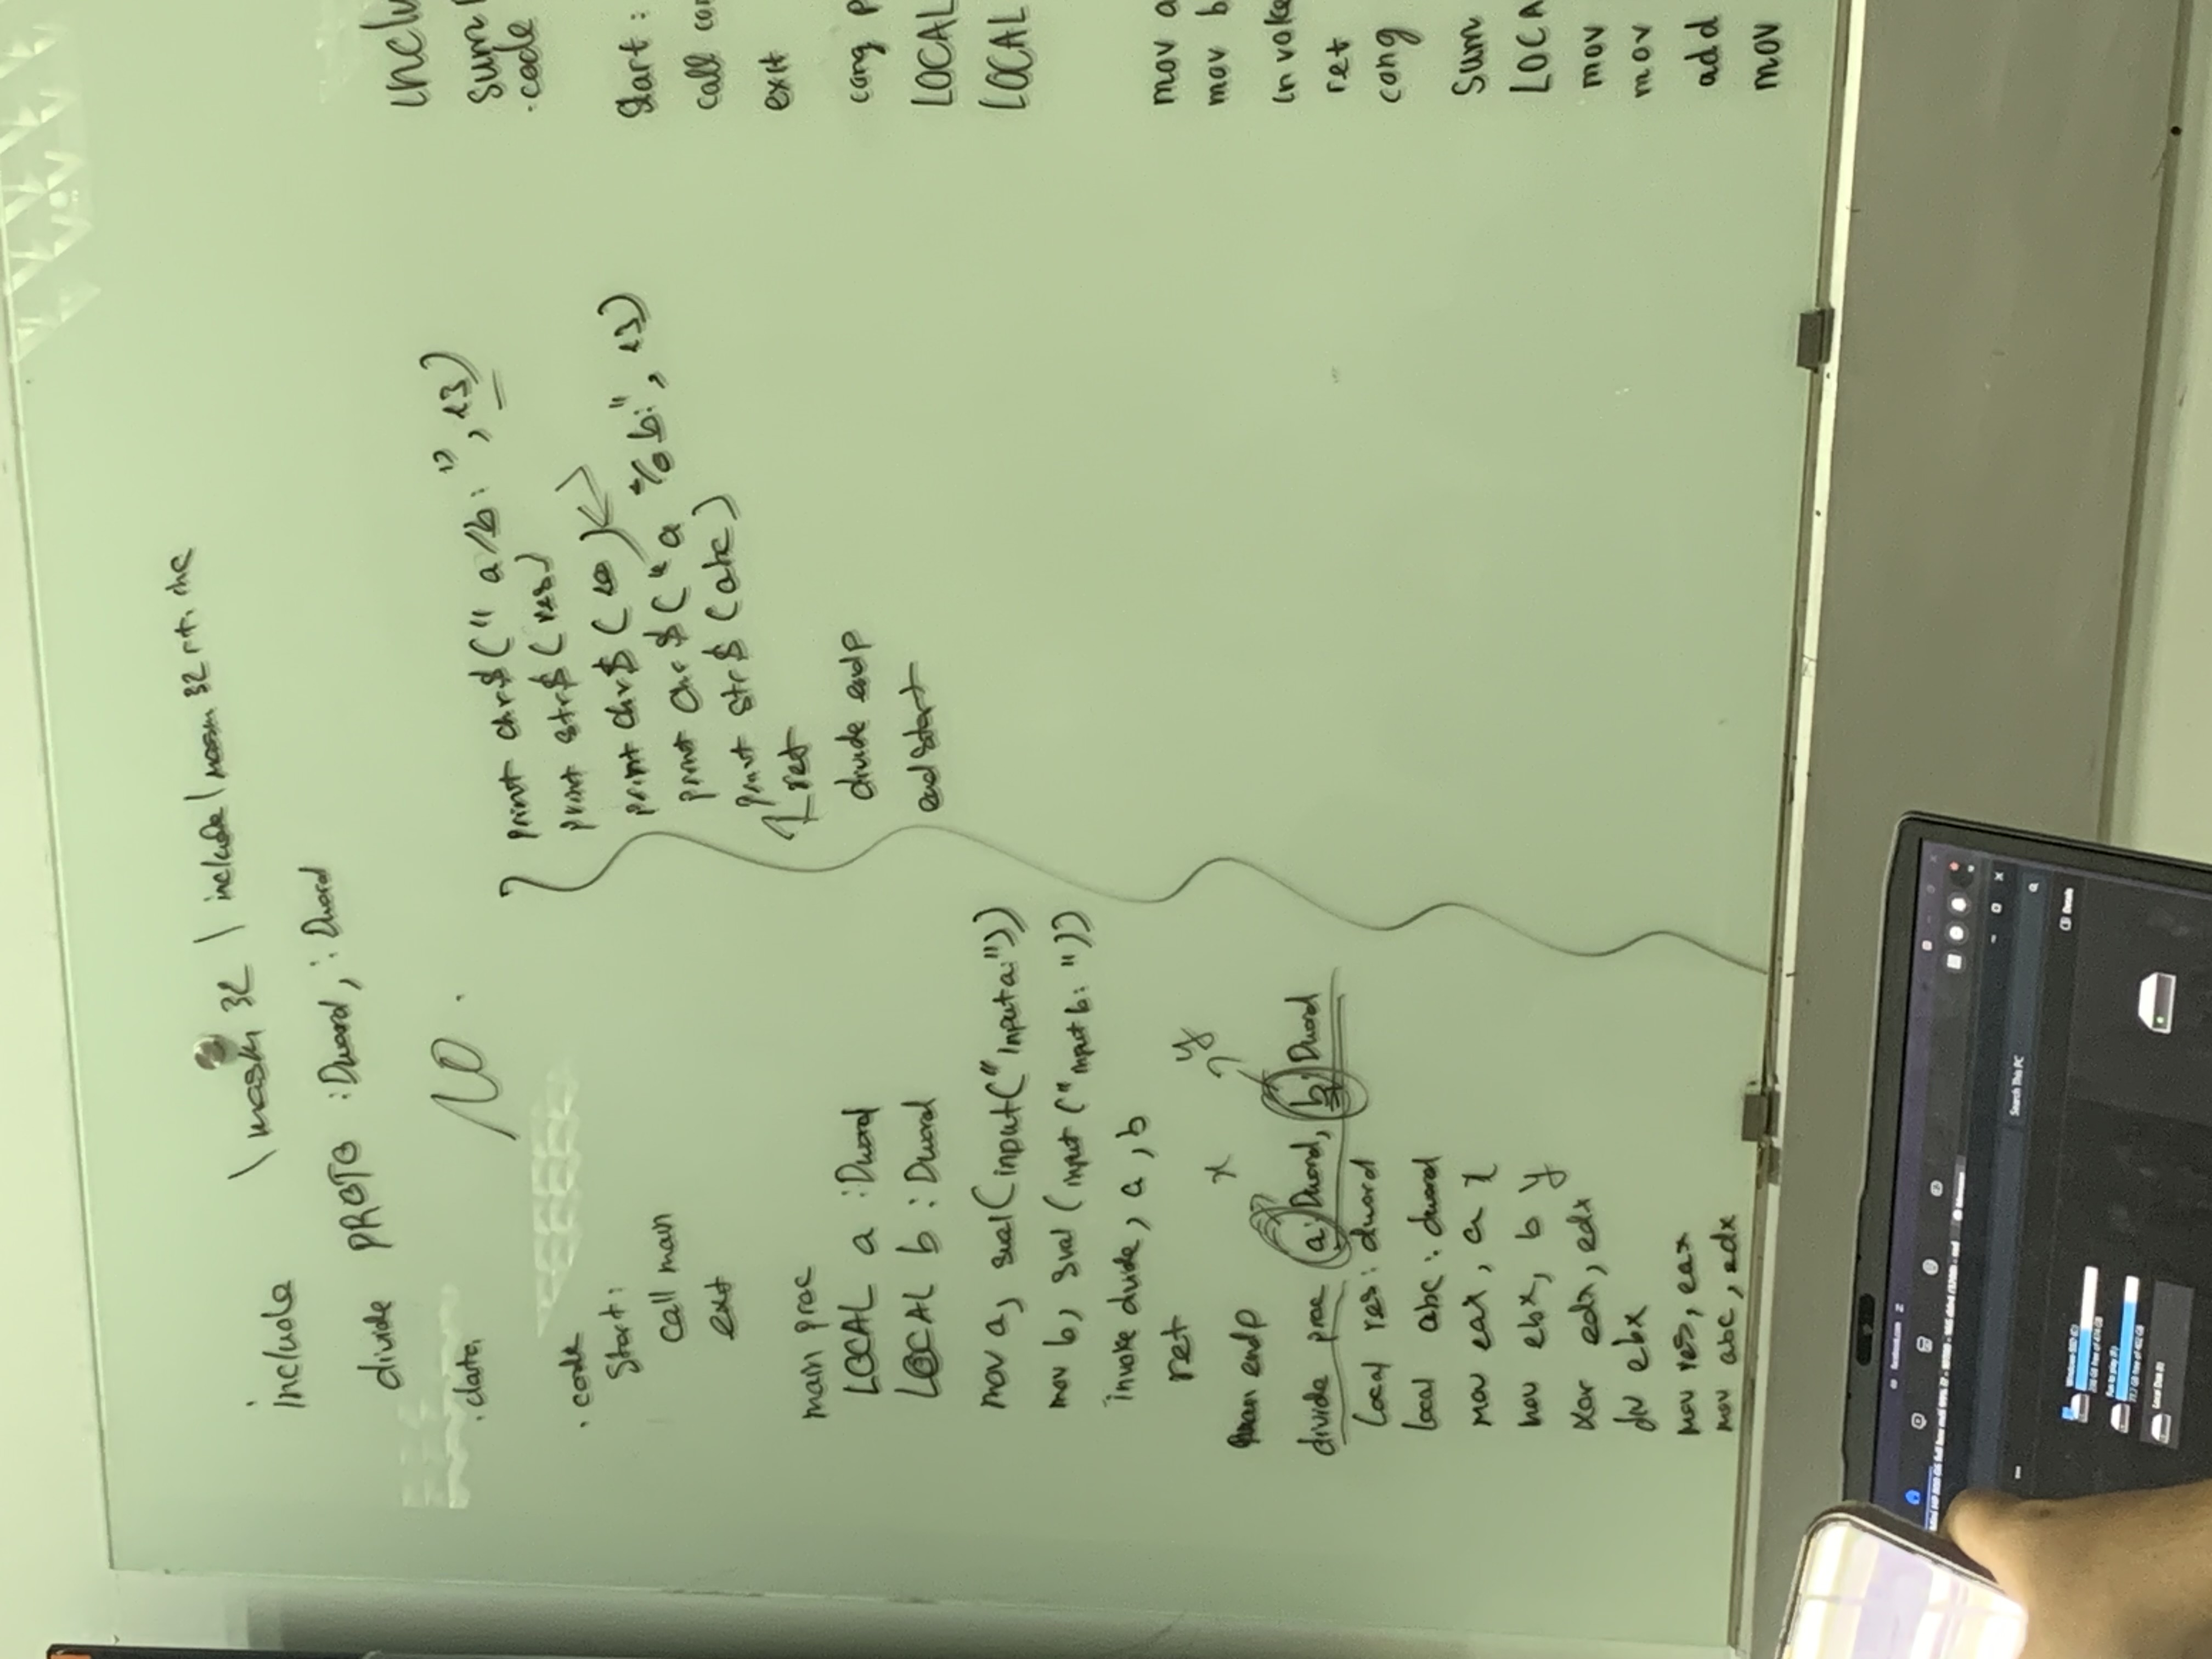 include \masm32\include\masm32rt.inc
divide PROTO :Dword, :Dword
.data
10.
.code
Start:
call main
exit
main proc
LOCAL a :Dword
LOCAL b : Dword
mov a, sval(input("Input a:"))
mov b, sval(input("input b: "))
invoke divide, a, b
ret
main endp
x
y
divide proc a: Dword, b: Dword
Local res: dword
local abc: dword
mov eax, a x
mov ebx, b y
xor edx, edx
div ebx
mov res, eax
mov abc, edx
print chr$(" a/b: ", 13)
print str$(res)
print chr$(10)
print chr$("a % b:", 13)
print str$(abc)
ret
divide endp
end start
inclu
sum
.code
Start:
call con
exit
cong p
LOCAL
LOCAL
mov a
mov b
invoke
ret
cong
Sum
LOCA
mov
mov
add
mov
facebook.com
Search This PC
Details
Windows-SSD (C:)
Fun to play (F:)
Local Disk